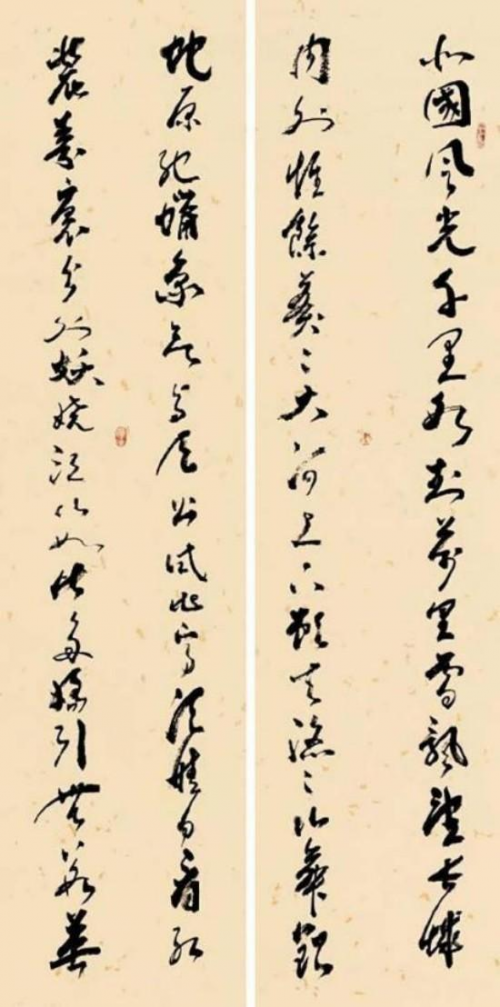 北國風光千里冰封萬里雪飄望長城
内外惟餘莽々大河上下頓失滔々山舞銀
蛇原馳蠟象欲與天公試比高須晴日看紅
裝素裹分外妖嬈江山如此多嬌引無數英